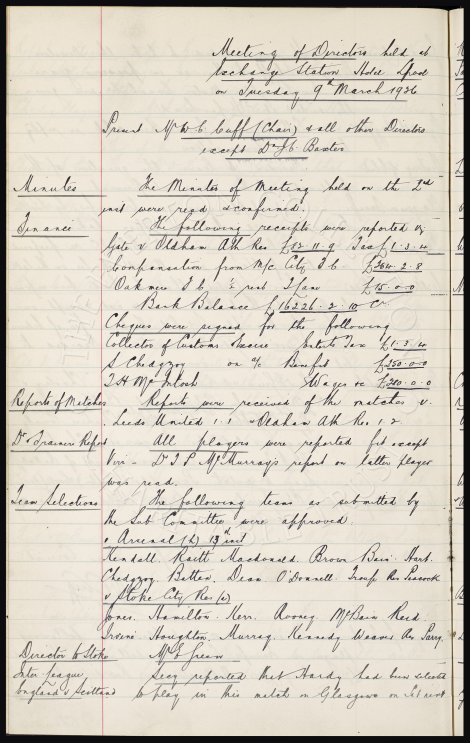 Meeting of Directors held at
Exchange Station Hotel L'pool
on Tuesday 9th March 1926
Present Mr W. C. Cuff (Chair) & all other Directors
except Dr J. C. Baxter
Minutes The Minutes of Meeting held on the 2nd
inst were read & confirmed.
Finance The following receipts were reported viz
Gate v Oldham Ath Res £12-11-9 Tax £1-3-4
Compensation from M/c City F C £264-2-8
Oakmere F C rent £15-0-0
Bank Balance £16226-2-10 Cr.
Cheques were signed for the following
Collector of Customs & Excise Ents Tax £1-3-4
S Chedgzoy on a/c Benefit £350-0-0
T. H. McIntosh Wages &c £200-0-0
Reports of Matches Reports were received of the matches v.
Leeds United 1.1 & Oldham Ath Res 1.2
Dr & Trainers Report All players were reported fit except
Virr - Dr T P McMurray's report on latter player
was read.
Team Selections The following teams as submitted by
the Sub Committee were approved.
v Arsenal (h) 13th inst
Kendall. Raitt Macdonald. Brown Bain. Hart.
Chedgzoy. Batten. Dean. O'Donnell. Troup Res Peacock
v Stoke City Res (a)
Jones. Hamilton. Kerr. Rooney McBain Reid.
Irvine. Houghton. Murray. Kennedy Weaver Res Parry.
Director to Stoke Mr E Green
Inter League
England v Scotland
Secy reported that Hardy had been selected
to play in this match on Glasgow on Sat next